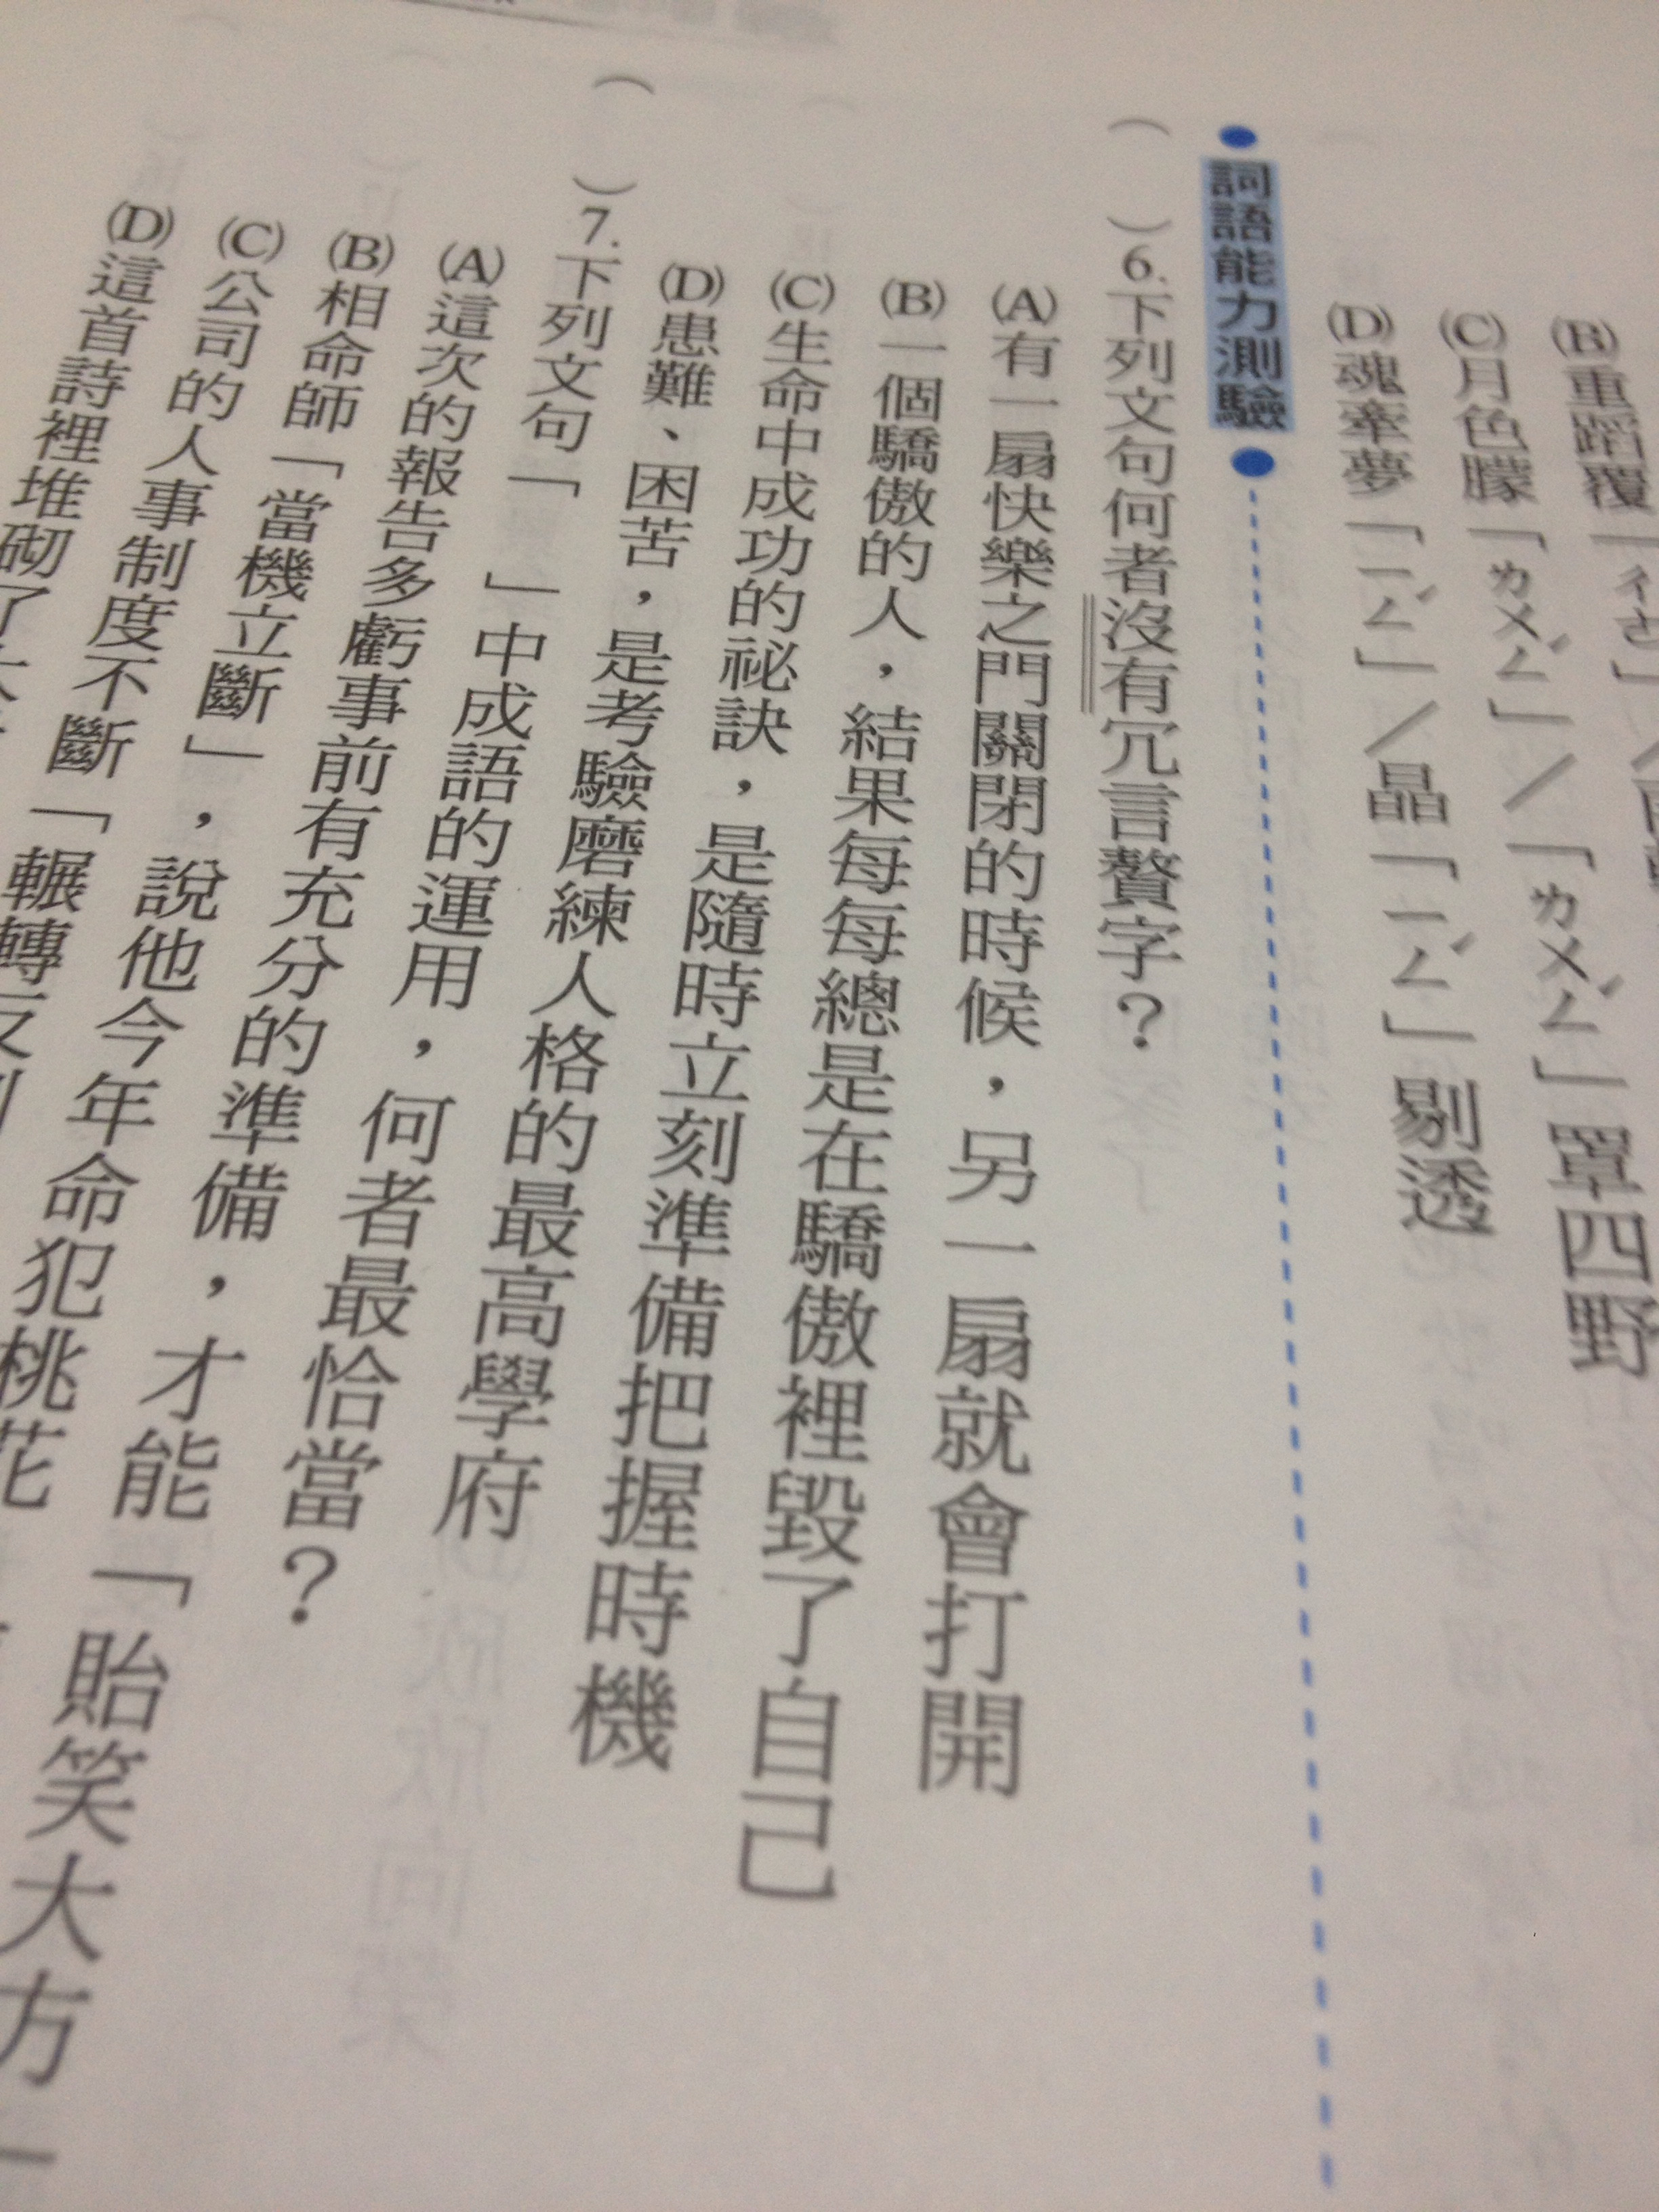 (B)重蹈覆「ㄔㄜ
(C)月色朦「ㄌㄨㄥˊ」/「ㄌㄨㄥˊ」罩四野
(D)魂牽夢「ㄧㄥˊ」/晶「ㄧㄥˊ」剔透
詞語能力測驗
( )6.下列文句何者沒有冗言贅字?
(A)有一扇快樂之門關閉的時候,另一扇就會打開
(B)一個驕傲的人,結果每每總是在驕傲裡毀了自己
(C)生命中成功的祕訣,是隨時立刻準備把握時機
(D)患難、困苦,是考驗磨練人格的最高學府
( )7.下列文句「 」中成語的運用,何者最恰當?
(A)這次的報告多虧事前有充分的準備,才能「貽笑大方
(B)相命師「當機立斷」,說他今年命犯桃花
(C)公司的人事制度不斷「輾轉反
(D)這首詩裡堆砌了